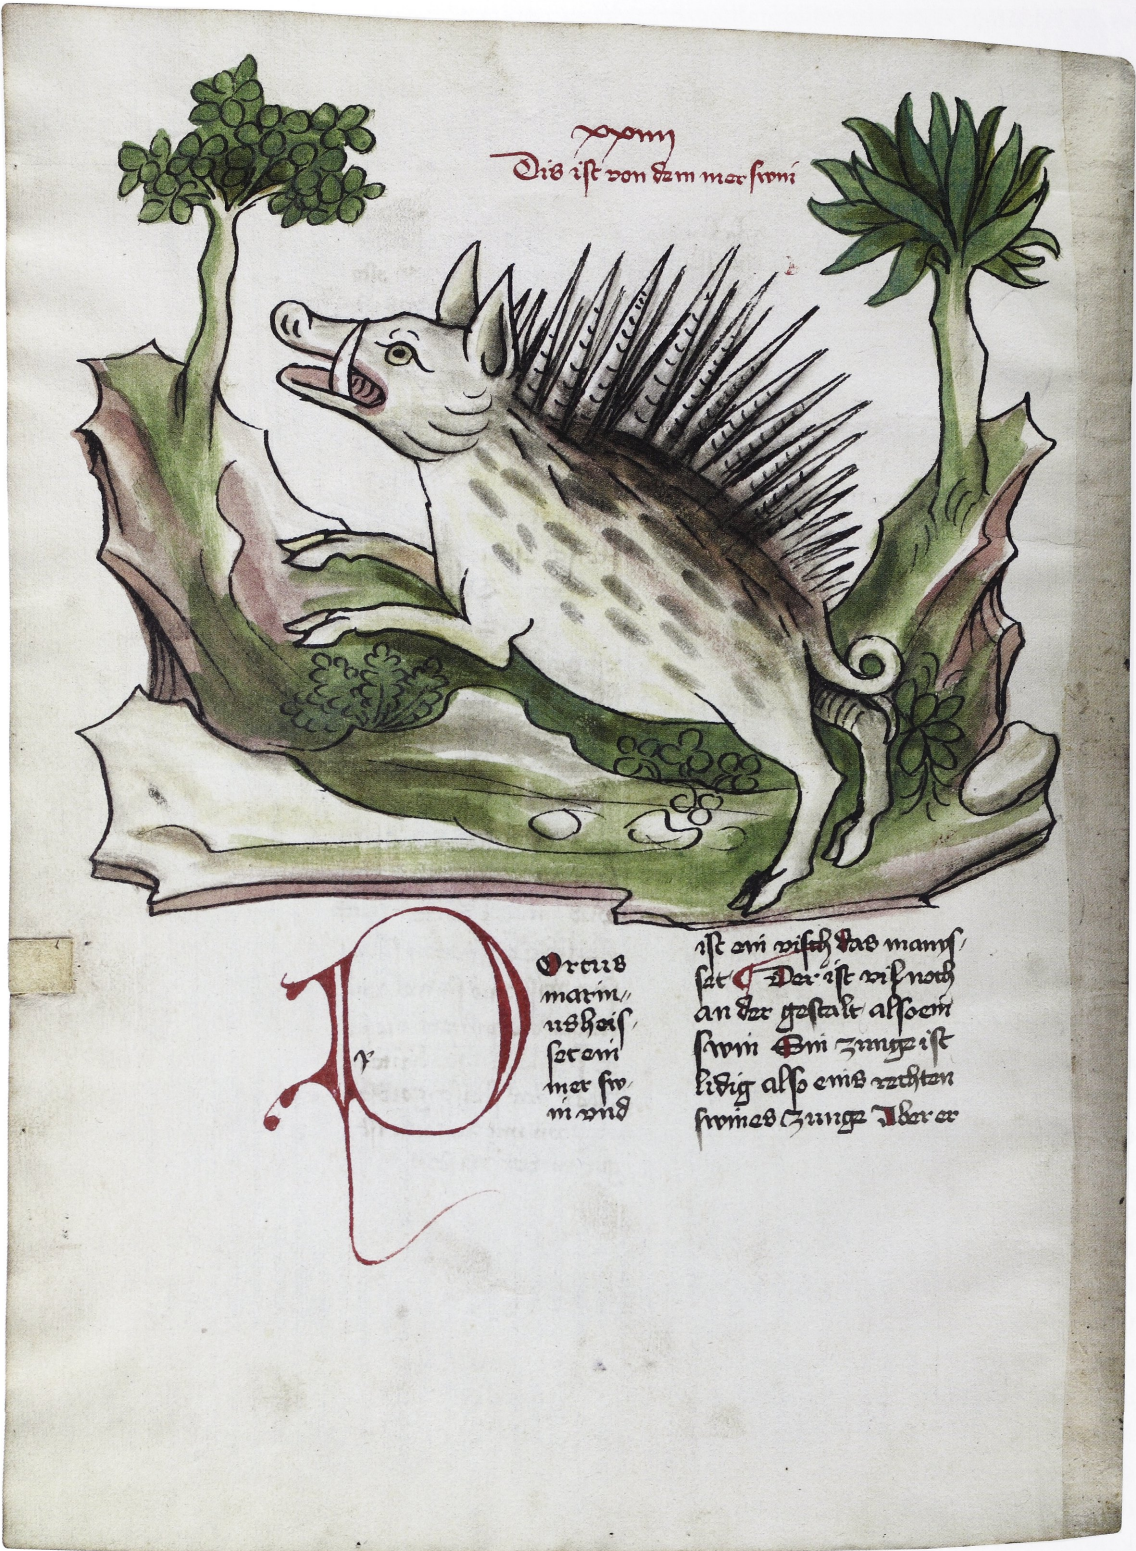 xxiiij
Dis ist von dem mer swin
Porcus
marin〃
us heis/
set ein
mer sw/
in vnd
ist ein visch das manys/
set Der ist vis noch
an der gestalt also ein
swin Sin zunge ist
lidig also eins rechten
swines zunge Aber er